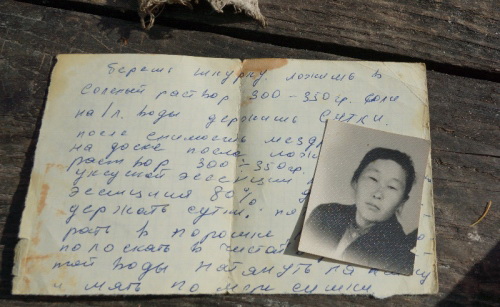 берешь шкурку ложишь в
соленый раствор 300-350 гр. соли
на 1 л. воды держишь сутки.
после снимость мезд
на доске после лож
раствор 300-350гр.
уксусной эссенции
эссенция 80%
держать сутки. по
рать в порошке
полоскать в чистой
той воды натянуть на
и мять по мере сушки.